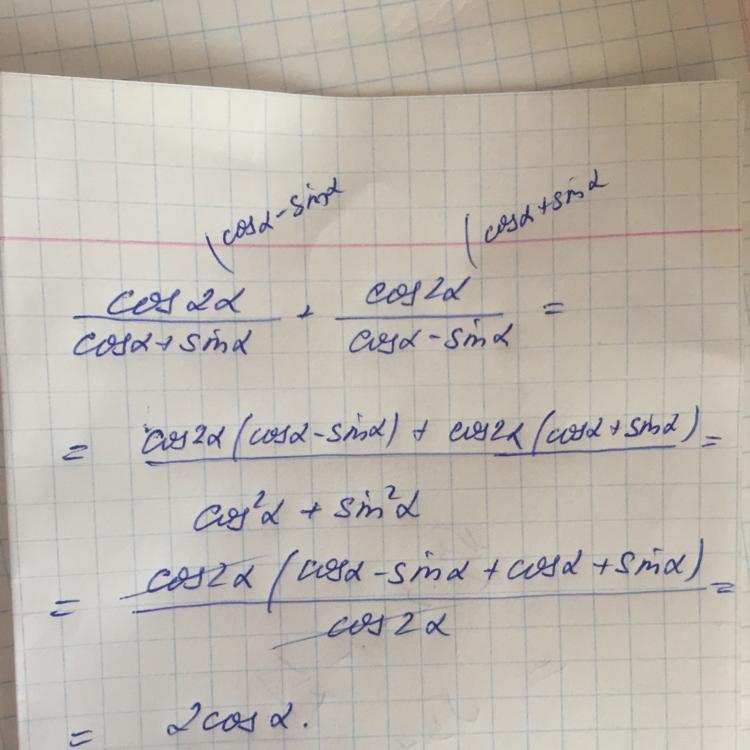 (cosα-sinα (cosα+sinα
cos2α/(cosα+sinα) + cos2α/(cosα-sinα) =
= cos2α(cosα-sinα) + cos2α(cosα+sinα) =
cos²α + sin²α
= cos2α(cosα-sinα+cosα+sinα) =
cos2α
= 2cosα.